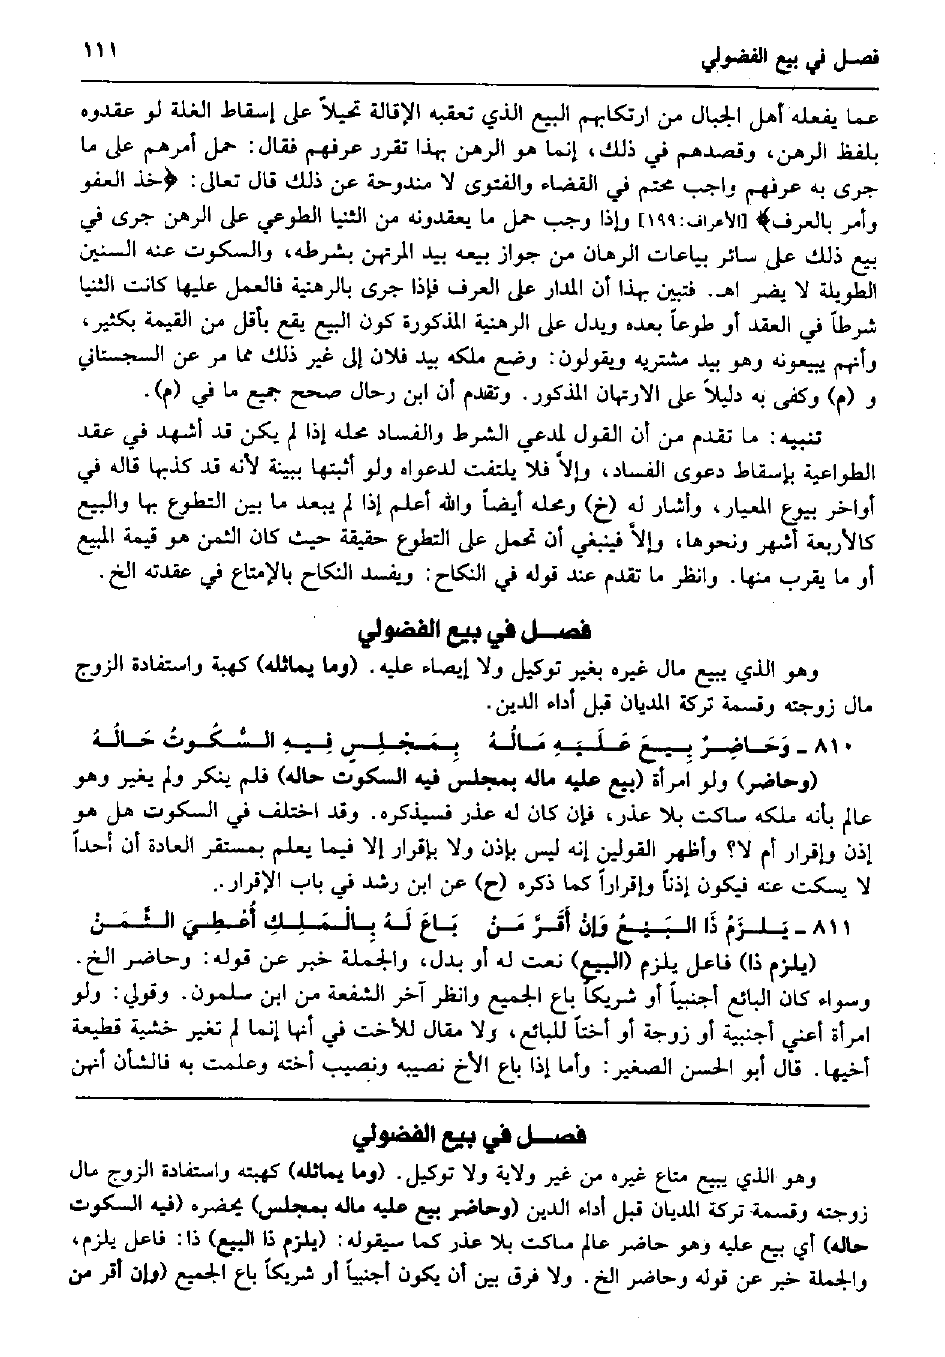 فصل في بيع الفضولي ١١١
عما يفعله أهل الجبال من ارتكابهم البيع الذي تعقبه الإقالة تحيلاً على إسقاط الغلة لو عقدوه
بلفظ الرهن، وقصدهم في ذلك، إنما هو الرهن بهذا تقرر عرفهم فقال: حمل أمرهم على ما
جرى به عرفهم واجب محتم في القضاء والفتوى لا مندوحة عن ذلك قال تعالى: ﴿خذ العفو
وأمر بالعرف﴾ [الأعراف: ١٩٩] وإذا وجب حمل ما يعقدونه من الثنيا الطوعي على الرهن جرى في
بيع ذلك على سائر بياعات الرهان من جواز بيعه بيد المرتهن بشرطه، والسكوت عنه السنين
الطويلة لا يضر اهـ. فتبين بهذا أن المدار على العرف فإذا جرى بالرهنية فالعمل عليها كانت الثنيا
شرطاً في العقد أو طوعاً بعده ويدل على الرهنية المذكورة كون البيع يقع بأقل من القيمة بكثير،
وأنهم يبيعونه وهو بيد مشتريه ويقولون: وضع ملكه بيد فلان إلى غير ذلك مما مر عن السجستاني
و (م) وكفى به دليلاً على الارتهان المذكور. وتقدم أن ابن رحال صحح جميع ما في (م).
تنبيه: ما تقدم من أن القول لمدعي الشرط والفساد محله إذا لم يكن قد أشهد في عقد
الطواعية بإسقاط دعوى الفساد، وإلاَّ فلا يلتفت لدعواه ولو أثبتها ببينة لأنه قد كذبها قاله في
أواخر بيوع المعيار، وأشار له (خ) ومحله أيضاً والله أعلم إذا لم يبعد ما بين التطوع بها والبيع
كالأربعة أشهر ونحوها، وإلاَّ فينبغي أن تحمل على التطوع حقيقة حيث كان الثمن هو قيمة المبيع
أو ما يقرب منها. وانظر ما تقدم عند قوله في النكاح: ويفسد النكاح بالإمتاع في عقدته الخ.
فصل في بيع الفضولي
وهو الذي يبيع مال غيره بغير توكيل ولا إيصاء عليه. (وما يماثله) كهبة واستفادة الزوج
مال زوجته وقسمة تركة المديان قبل أداء الدين.
٨١٠ ـ وَحَاضِرٌ بِيعَ عَلَيهِ مَالُهُ بِمَجْلِسٍ فِيهِ السُّكُوتُ حَالُهُ
(وحاضر) ولو امرأة (بيع عليه ماله بمجلس فيه السكوت حاله) فلم ينكر ولم يغير وهو
عالم بأنه ملكه ساكت بلا عذر، فإن كان له عذر فسيذكره. وقد اختلف في السكوت هل هو
إذن وإقرار أم لا؟ وأظهر القولين إنه ليس بإذن ولا بإقرار إلا فيما يعلم بمستقر العادة أن أحداً
لا يسكت عنه فيكون إذناً وإقراراً كما ذكره (ح) عن ابن رشد في باب الإقرار.
٨١١ ـ يَلزمُ ذَا البَيْعُ وَإن أَقَرَّ مَنْ بَاعَ لَهُ بِالْمَلِكِ أُعْطِيَ الثَّمَنْ
(يلزم ذا) فاعل يلزم (البيع) نعت له أو بدل، والجملة خبر عن قوله: وحاضر الخ.
وسواء كان البائع أجنبياً أو شريكاً باع الجميع وانظر آخر الشفعة من ابن سلمون. وقولي: ولو
امرأة أعني أجنبية أو زوجة أو أختاً للبائع، ولا مقال للأخت في أنها إنما لم تغير خشية قطيعة
أخيها. قال أبو الحسن الصغير: وأما إذا باع الأخ نصيبه ونصيب أخته وعلمت به فالشأن أنهن
فصل في بيع الفضولي
وهو الذي يبيع متاع غيره من غير ولاية ولا توكيل. (وما يماثله) كهبته واستفادة الزوج مال
زوجته وقسمة تركة المديان قبل أداء الدين (وحاضر بيع عليه ماله بمجلس) يحضره (فيه السكوت
حاله) أي بيع عليه وهو حاضر عالم ساكت بلا عذر كما سيقوله: (يلزم ذا البيع) ذا: فاعل يلزم،
والجملة خبر عن قوله وحاضر الخ. ولا فرق بين أن يكون أجنبياً أو شريكاً باع الجميع (وإن أقر من